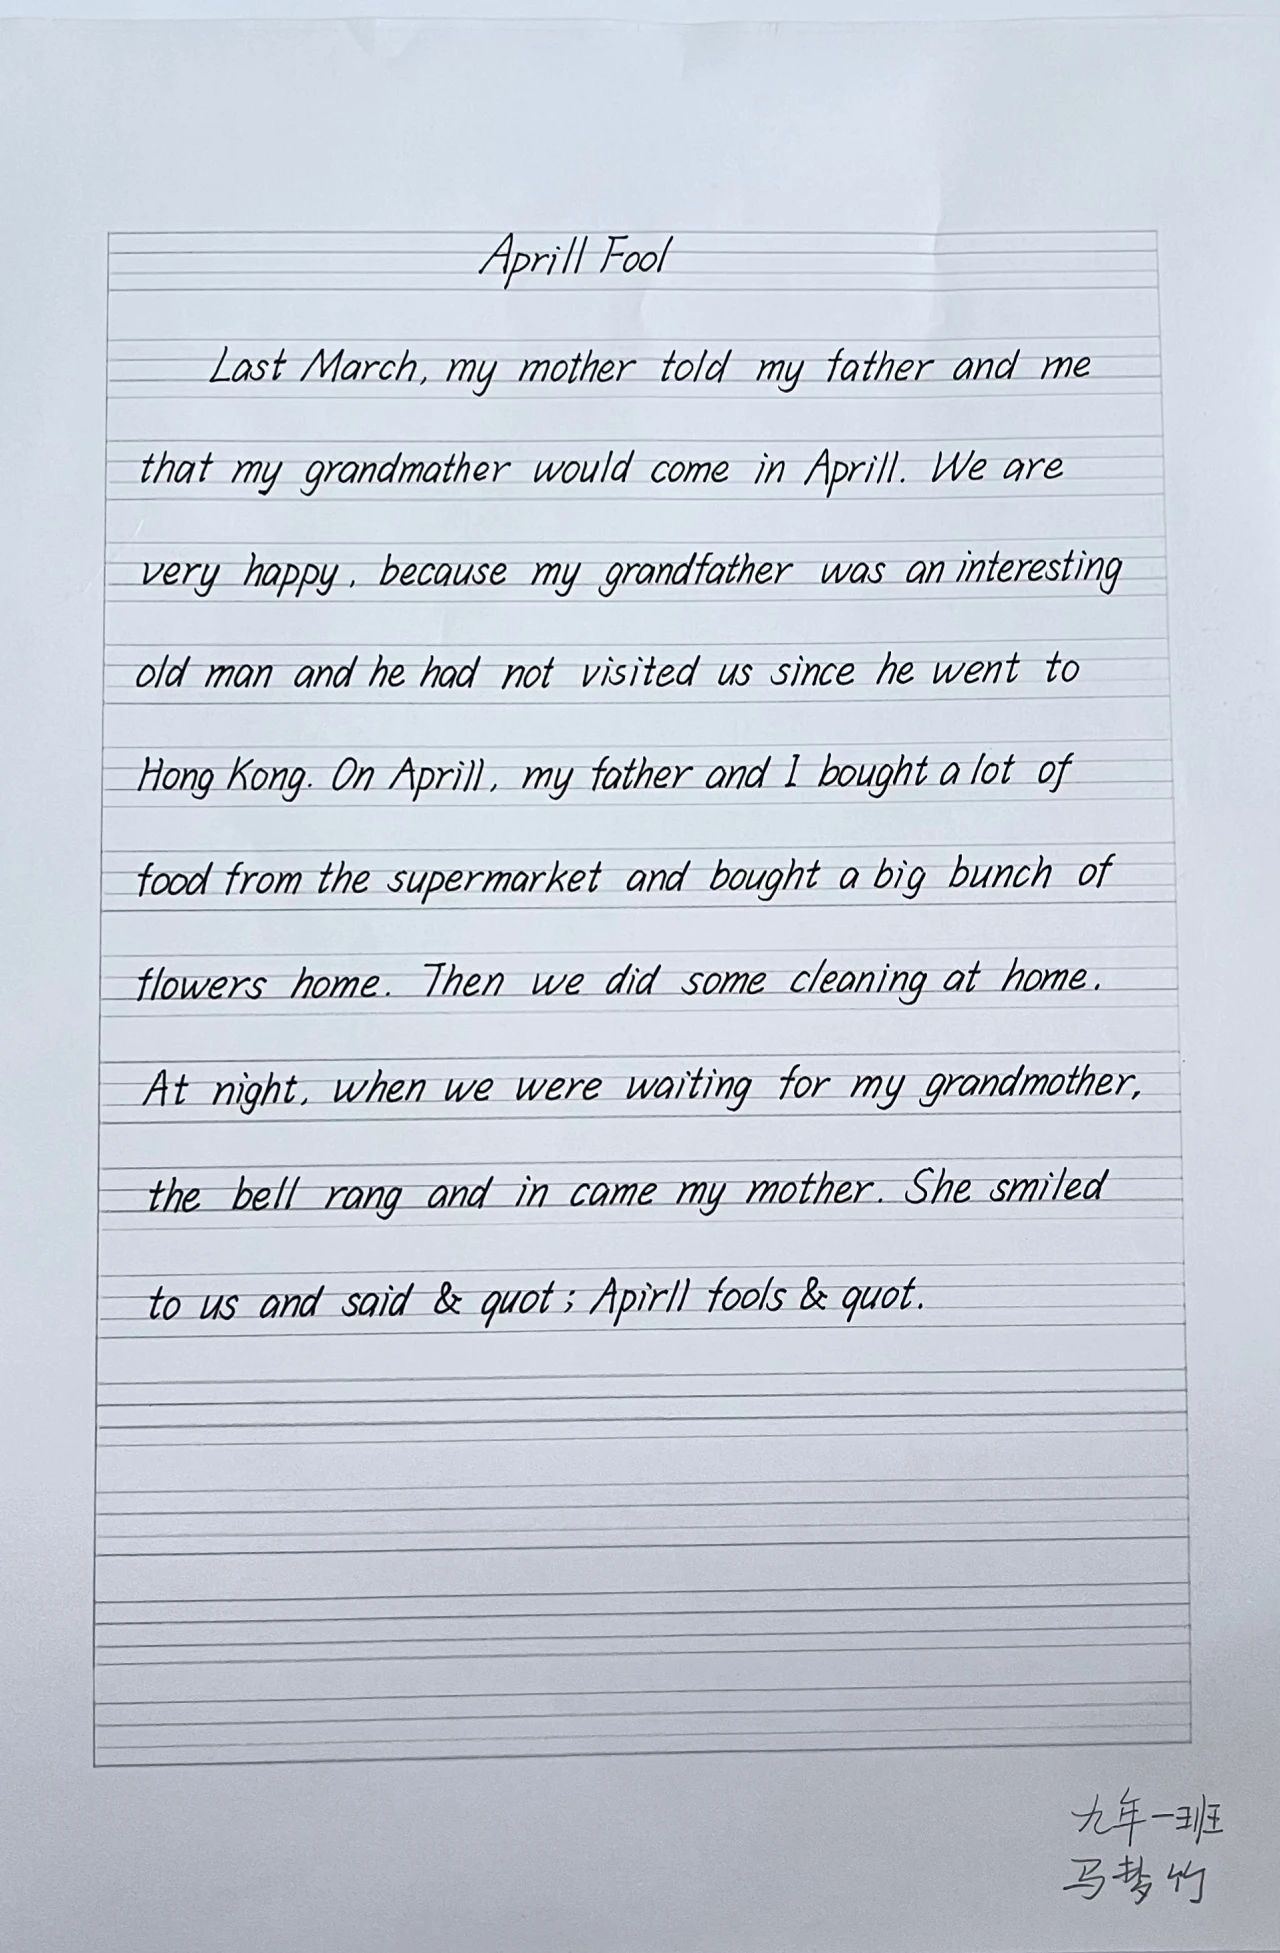 Aprill Fool
Last March, my mother told my father and me
that my grandmather would come in Aprill. We are
very happy, because my grandfather was an interesting
old man and he had not visited us since he went to
Hong Kong. On Aprill, my father and I bought a lot of
food from the supermarket and bought a big bunch of
flowers home. Then we did some cleaning at home.
At night, when we were waiting for my grandmother,
the bell rang and in came my mother. She smiled
to us and said & quot; Apirll fools & quot.
九年一班
马梦竹